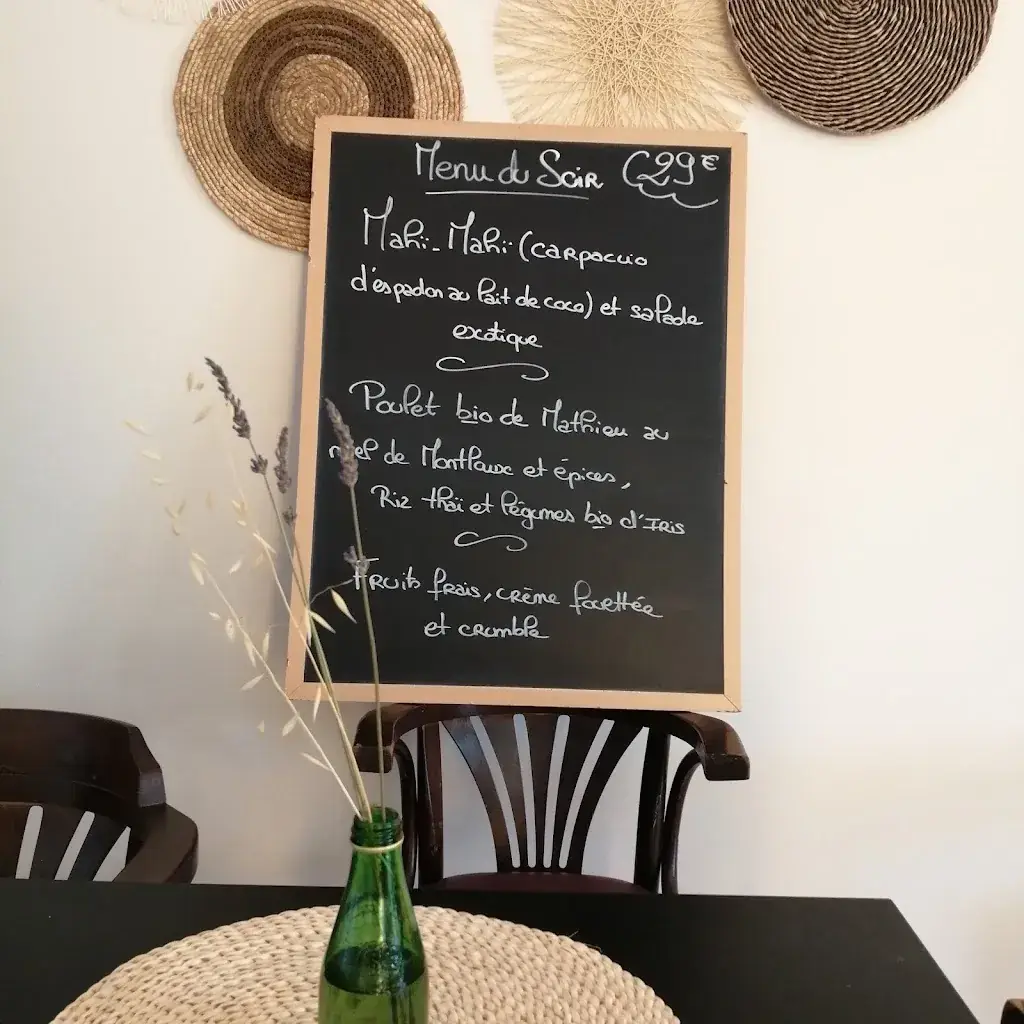 Menu du Soir 29€
Mahï-Mahï (carpaccio
d'éspadon au lait de coco) et salade
exotique
Poulet bio de Mathieu au
miel de Montlaux et épices,
Riz thaï et légumes bio d'Iris
Fruits frais, crème fouettée
et crumble